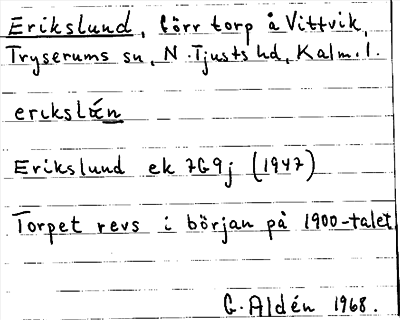 Erikslund, förr torp å Vittvik,
Tryserums sn, N. Tjusts hd, Kalm. l.
erıkslǽn
Erikslund ek 7G9j (1947)
Torpet revs i början på 1900-talet
G. Aldén 1968.